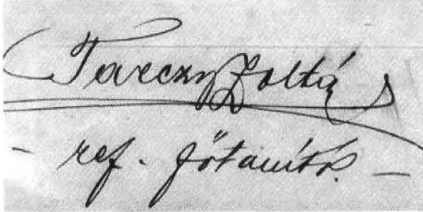 Tarczy Zoltán
- ref. főtanító. -